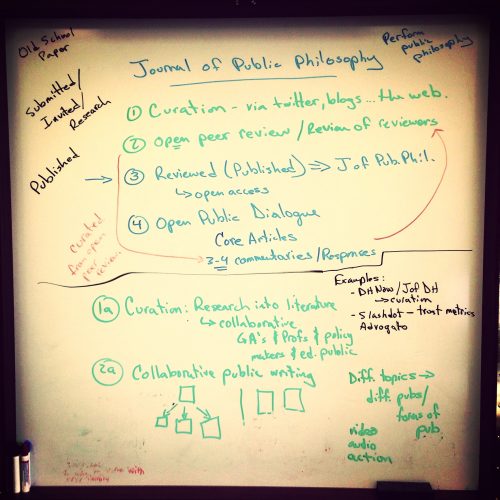 Old School
Paper
Perform
public
philosophy
Journal of Public Philosophy
Submitted/
Invited/
Research
① Curation - via twitter, blogs ... the web.
② Open peer review / Review of reviewers
Published
③ Reviewed (Published) ⇒ J of Pub. Phil.
↳ open access
④ Open Public Dialogue
Core Articles
3-4 commentaries/Responses
curated
from open
peer
review
Examples:
- DHNow/J of DH
→ curation
- Slashdot - trust metrics
Advogato
1a Curation: Research into literature
↳ collaborative
GA's & Profs & policy
makers & ed. public
2a Collaborative public writing
Diff. topics →
diff. pubs/
forms of
pub.
video
audio
action
with